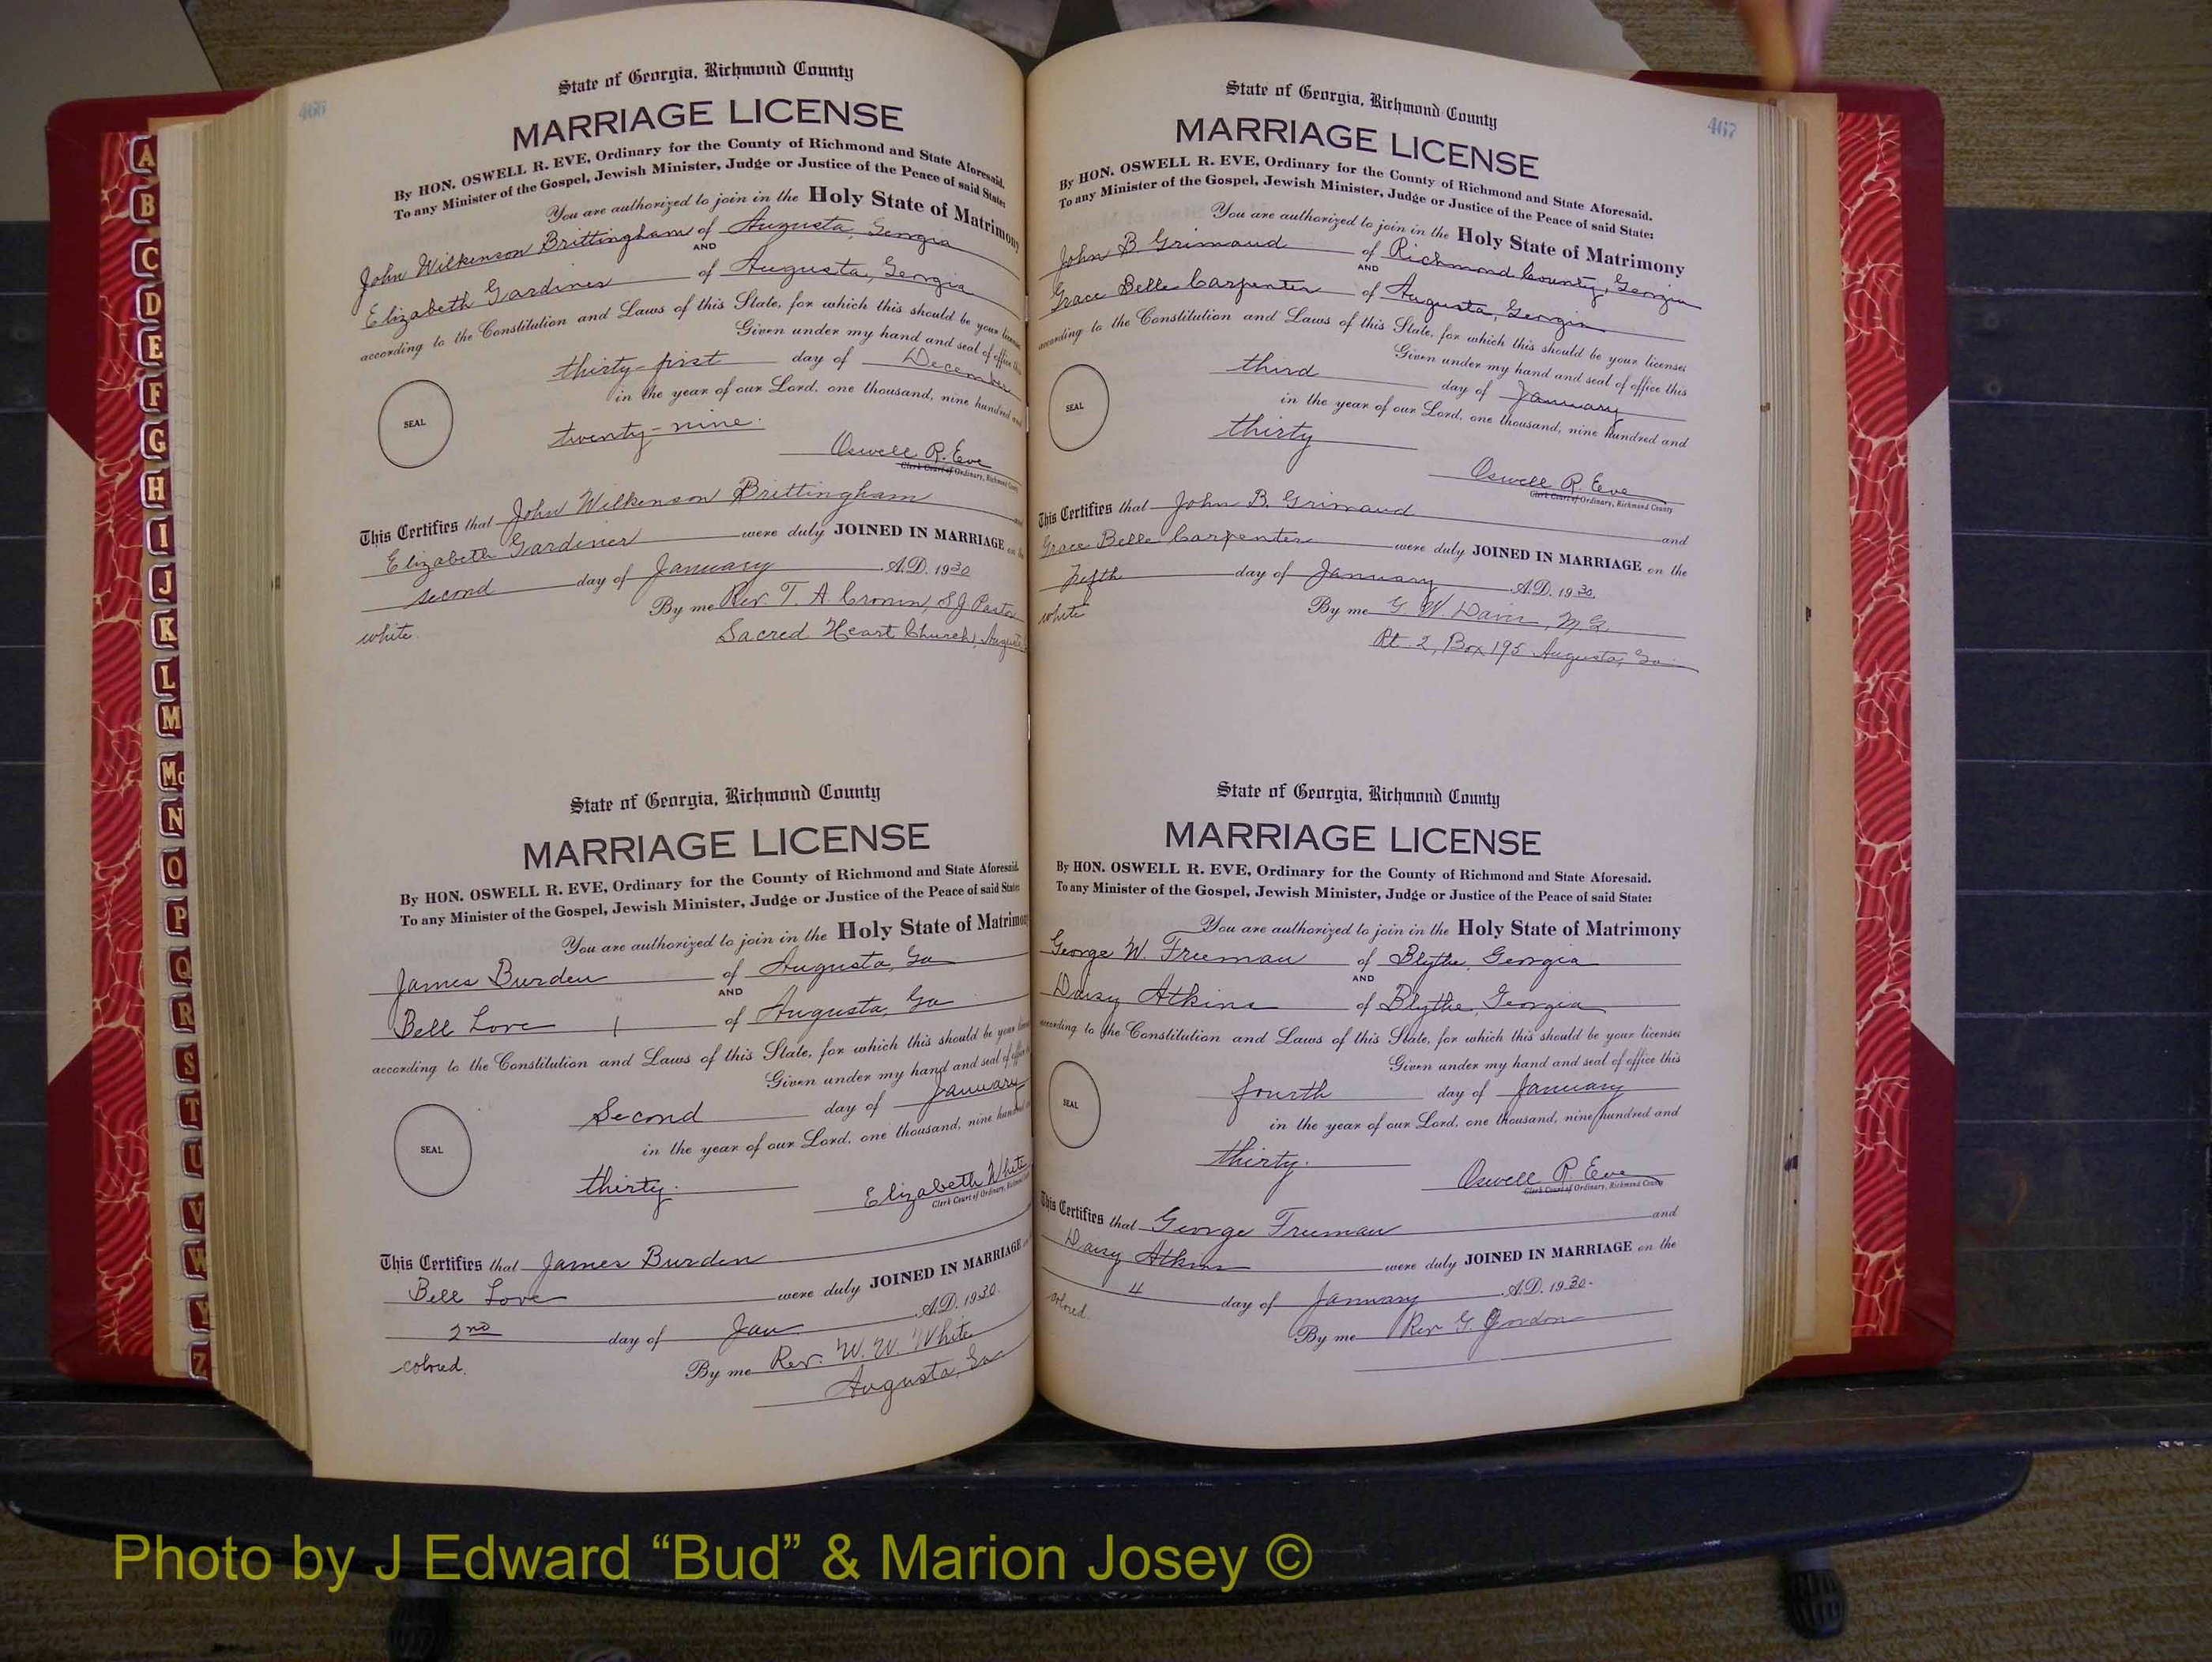 466
State of Georgia, Richmond County
MARRIAGE LICENSE
By HON. OSWELL R. EVE, Ordinary for the County of Richmond and State Aforesaid.
To any Minister of the Gospel, Jewish Minister, Judge or Justice of the Peace of said State:
You are authorized to join in the Holy State of Matrimony
John Wilkenson Brittingham of Augusta, Georgia
AND
Elizabeth Gardiner of Augusta, Georgia
according to the Constitution and Laws of this State, for which this should be your license
Given under my hand and seal of office this
thirty-first day of December
in the year of our Lord, one thousand, nine hundred and
SEAL
twenty-nine.
Oswell R. Eve
Clerk Court of Ordinary, Richmond County
This Certifies that John Wilkenson Brittingham and
Elizabeth Gardiner were duly JOINED IN MARRIAGE on the
second day of January A.D. 1930
By me Rev. T. A. Cronin, S.J. Pastor
white.
Sacred Heart Church, Augusta
State of Georgia, Richmond County
MARRIAGE LICENSE
By HON. OSWELL R. EVE, Ordinary for the County of Richmond and State Aforesaid.
To any Minister of the Gospel, Jewish Minister, Judge or Justice of the Peace of said State:
You are authorized to join in the Holy State of Matrimony
James Burden of Augusta, Ga
AND
Bell Love of Augusta, Ga
according to the Constitution and Laws of this State, for which this should be your
Given under my hand and seal of office
Second day of January
in the year of our Lord, one thousand, nine hundred
SEAL
thirty.
Elizabeth White
Clerk Court of Ordinary, Richmond
This Certifies that James Burden
Bell Love were duly JOINED IN MARRIAGE
2nd day of Jan A.D. 1930.
colored. By me Rev. W. W. White
Augusta, Ga
467
State of Georgia, Richmond County
MARRIAGE LICENSE
By HON. OSWELL R. EVE, Ordinary for the County of Richmond and State Aforesaid.
To any Minister of the Gospel, Jewish Minister, Judge or Justice of the Peace of said State:
You are authorized to join in the Holy State of Matrimony
John B Grimaud of Richmond County, Georgia
AND
Grace Belle Carpenter of Augusta, Georgia
according to the Constitution and Laws of this State, for which this should be your licenses
Given under my hand and seal of office this
third day of January
in the year of our Lord, one thousand, nine hundred and
SEAL
thirty
Oswell R. Eve
Clerk Court of Ordinary, Richmond County
This Certifies that John B. Grimaud and
Grace Belle Carpenter were duly JOINED IN MARRIAGE on the
Fifth day of January A.D. 1930.
white By me G. W. Davis, M.G.
Rt. 2, Box 195 Augusta, Ga
State of Georgia, Richmond County
MARRIAGE LICENSE
By HON. OSWELL R. EVE, Ordinary for the County of Richmond and State Aforesaid.
To any Minister of the Gospel, Jewish Minister, Judge or Justice of the Peace of said State:
You are authorized to join in the Holy State of Matrimony
George W. Freeman of Blythe, Georgia
AND
Daisy Atkins of Blythe, Georgia
according to the Constitution and Laws of this State, for which this should be your licenses
Given under my hand and seal of office this
fourth day of January
in the year of our Lord, one thousand, nine hundred and
SEAL
thirty.
Oswell R. Eve
Clerk Court of Ordinary, Richmond County
This Certifies that George Freeman and
Daisy Atkins were duly JOINED IN MARRIAGE on the
4 day of January A.D. 1930-
colored. By me Rev G. Gordon
A
B
C
D
E
F
G
H
I
J
K
L
M
Mc
N
O
P
Q
R
S
T
U
V
W
Y
Z
Photo by J Edward “Bud” & Marion Josey ©